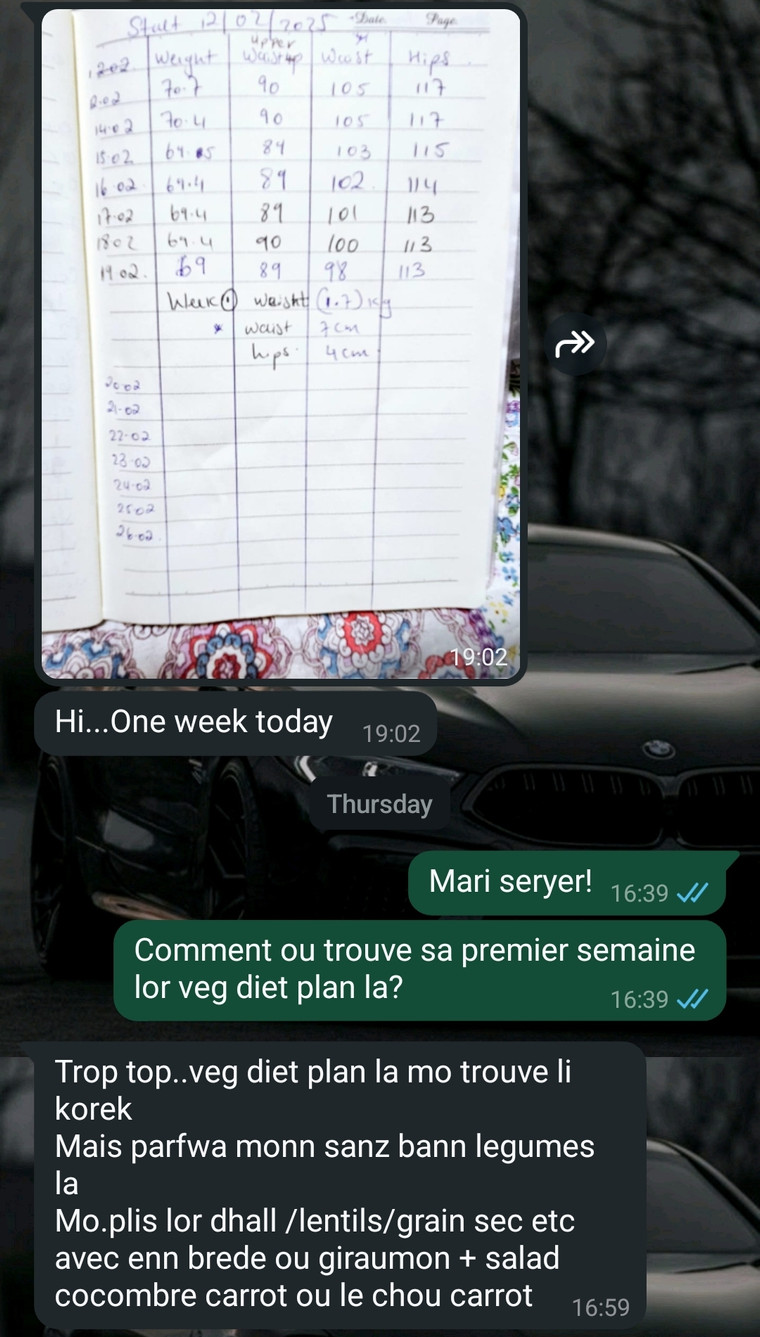 Start 12/02/2025 Date Page
upper
12-02 Weight Waist Waist Hips
70.7 90 105 117
14-02 70.4 90 105 117
15-02 103 115
16-02 69.4 89 102 114
17-02 69.4 89 101 113
18-02 69.4 90 100 113
19-02. 69 89 98 113
Week ① weight (1.7) kg
* waist 7cm
hips. 4cm
20-02
21-02
22-02
23-02
24-02
25-02
26-02
19:02
Hi...One week today 19:02
Thursday
Mari seryer! 16:39
Comment ou trouve sa premier semaine
lor veg diet plan la? 16:39
Trop top..veg diet plan la mo trouve li
korek
Mais parfwa monn sanz bann legumes
la
Mo.plis lor dhall /lentils/grain sec etc
avec enn brede ou giraumon + salad
cocombre carrot ou le chou carrot 16:59